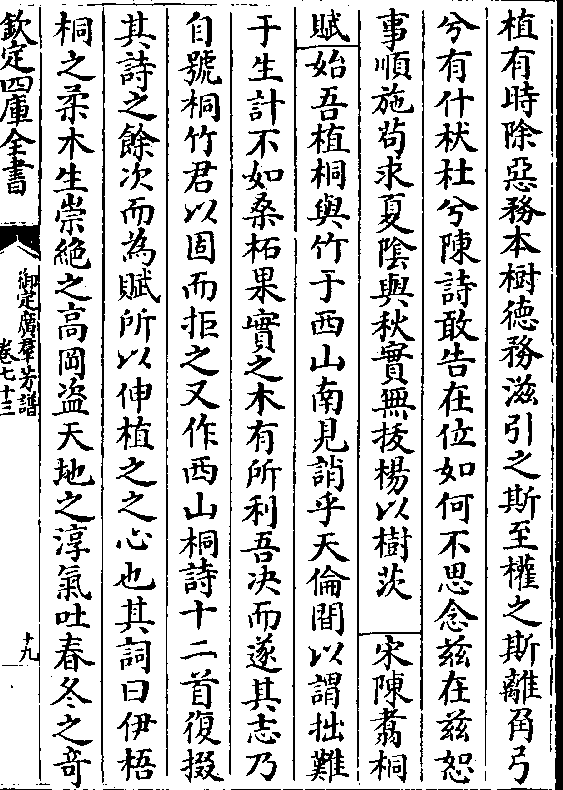 植有時除惡務本樹德務滋引之斯至權之斯離角弓
兮有什杕杜兮陳詩敢告在位如何不思念兹在兹恕
事順施茍求夏陰與秋實無拔楊以樹茨 宋陳翥桐
賦始吾植桐與竹于西山南見誚乎天倫間以謂拙難
于生計不如桑柘果實之木有所利吾决而遂其志乃
自號桐竹君以固而拒之又作西山桐詩十二首復掇
其詩之餘次而為賦所以伸植之之心也其詞曰伊梧
桐之柔木生崇絶之高岡盗天地之淳氣吐春冬之奇
欽定四庫全書
御定廣羣芳譜
卷七十三
十九